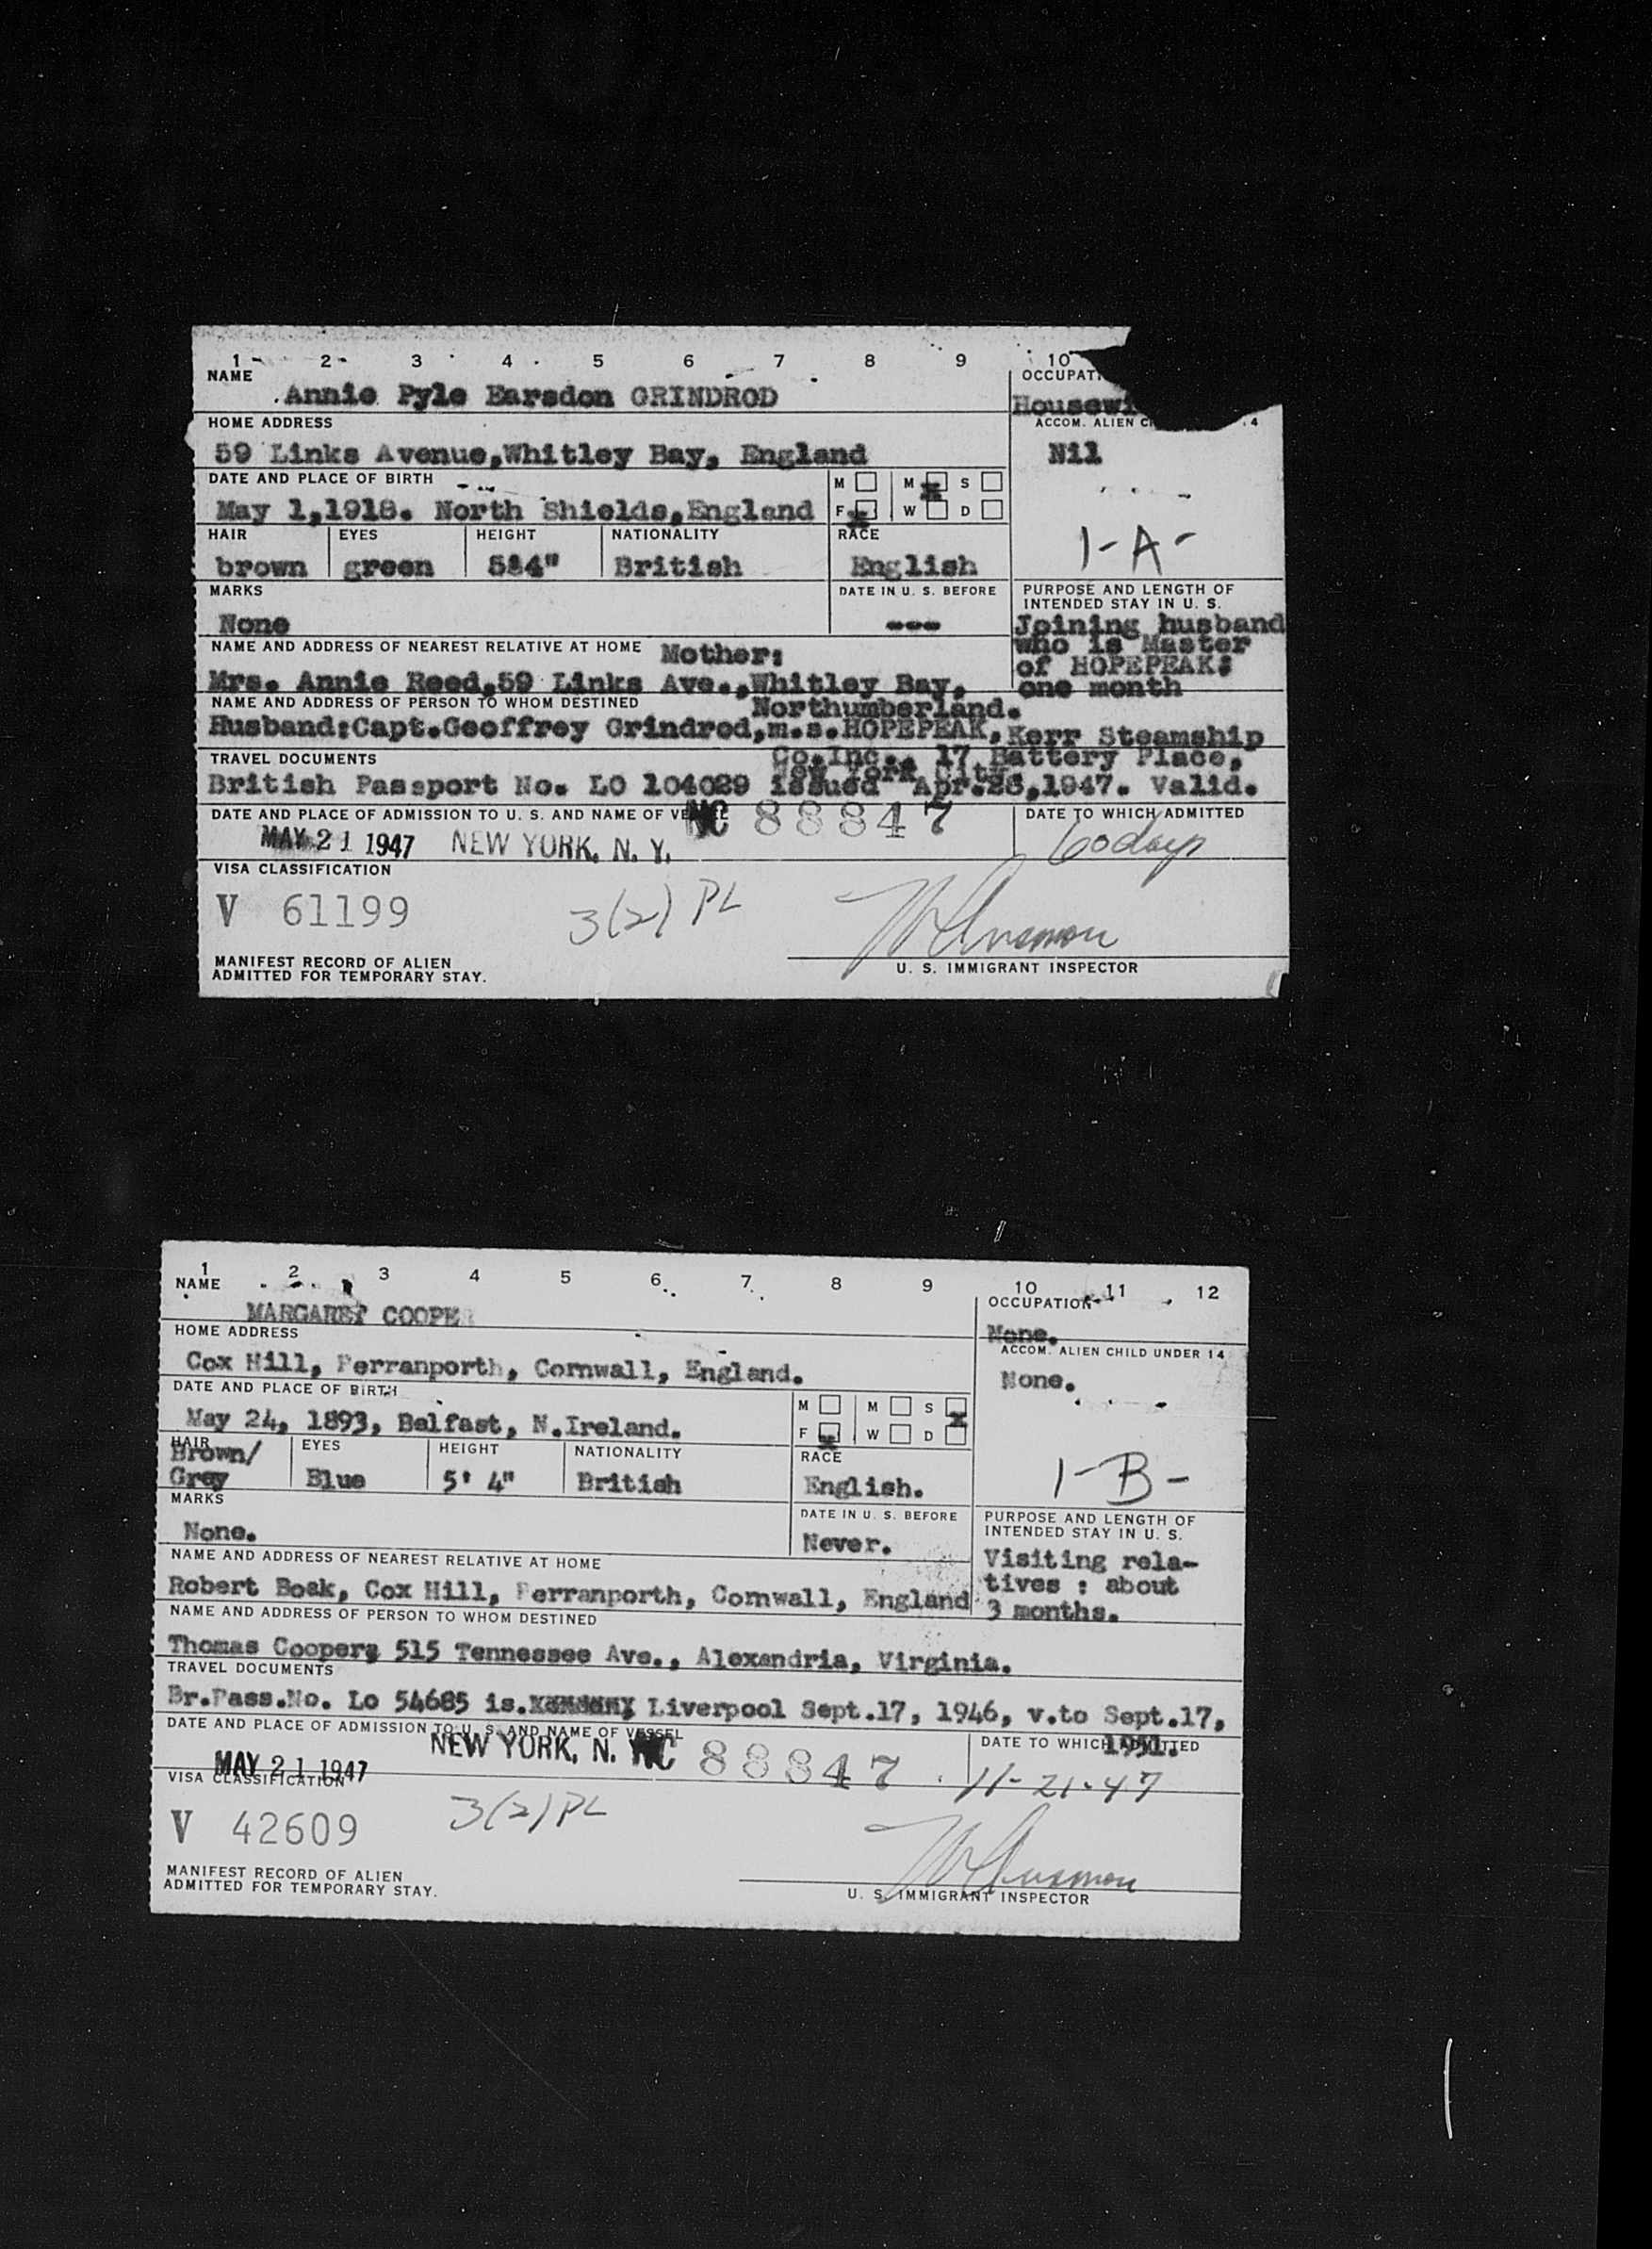 1 2 3 4 5 6 7 8 9 10
NAME
OCCUPATI
Annie Pyle Earsdon GRINDROD
Housewi
HOME ADDRESS
ACCOM. ALIEN C 4
59 Links Avenue,Whitley Bay, England
Nil
DATE AND PLACE OF BIRTH
M M S
May 1,1918. North Shields,England
F W D
HAIR EYES HEIGHT NATIONALITY RACE
1-A-
brown green 5'4" British English
MARKS
DATE IN U. S. BEFORE
PURPOSE AND LENGTH OF
INTENDED STAY IN U. S.
None
---
Joining husband
who is Master
of HOPEPEAK:
one month
NAME AND ADDRESS OF NEAREST RELATIVE AT HOME Mother:
Mrs. Annie Reed,59 Links Ave.,Whitley Bay,
Northumberland.
NAME AND ADDRESS OF PERSON TO WHOM DESTINED
Husband:Capt.Geoffrey Grindrod,m.s.HOPEPEAK,Kerr Steamship
Co.Inc., 17 Battery Place,
New York City
TRAVEL DOCUMENTS
British Passport No. LO 104029 issued Apr.28,1947. Valid.
DATE AND PLACE OF ADMISSION TO U. S. AND NAME OF VESSEL
NC 88847
DATE TO WHICH ADMITTED
MAY 21 1947 NEW YORK, N. Y.
60 days
VISA CLASSIFICATION
V 61199
3(2) PL
MANIFEST RECORD OF ALIEN
ADMITTED FOR TEMPORARY STAY.
U. S. IMMIGRANT INSPECTOR
1 2 3 4 5 6 7 8 9 10 11 12
NAME
OCCUPATION
MARGARET COOPE
None.
HOME ADDRESS
ACCOM. ALIEN CHILD UNDER 14
Cox Hill, Perranporth, Cornwall, England.
None.
DATE AND PLACE OF BIRTH
M M S
May 24, 1893, Belfast, N.Ireland.
F W D
HAIR EYES HEIGHT NATIONALITY RACE
Brown/
Grey Blue 5' 4" British English.
1-B-
MARKS
DATE IN U. S. BEFORE
PURPOSE AND LENGTH OF
INTENDED STAY IN U. S.
None.
Never.
Visiting rela-
tives : about
3 months.
NAME AND ADDRESS OF NEAREST RELATIVE AT HOME
Robert Boak, Cox Hill, Perranporth, Cornwall, England
NAME AND ADDRESS OF PERSON TO WHOM DESTINED
Thomas Cooper, 515 Tennessee Ave., Alexandria, Virginia.
TRAVEL DOCUMENTS
Br.Pass.No. Lo 54685 is. Liverpool Sept.17, 1946, v.to Sept.17,
1951.
DATE AND PLACE OF ADMISSION TO U. S. AND NAME OF VESSEL
DATE TO WHICH ADMITTED
MAY 21 1947 NEW YORK, N. Y. NC 88847
11-21-47
VISA CLASSIFICATION
V 42609
3(2) PL
MANIFEST RECORD OF ALIEN
ADMITTED FOR TEMPORARY STAY.
U. S. IMMIGRANT INSPECTOR